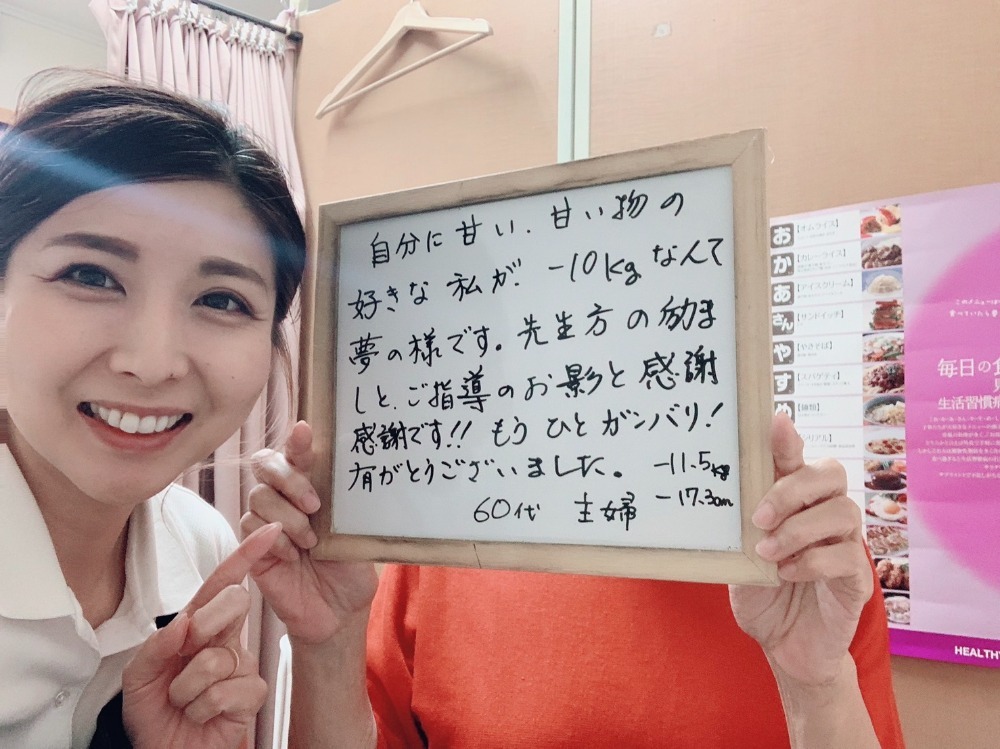 自分に甘い、甘い物の
好きな私が、-10kgなんて
夢の様です。先生方の励ま
しと、ご指導のお影と感謝
感謝です!! もうひとガンバリ!
有がとうございました。 -11.5kg
60代 主婦 -17.3cm
お【オムライス】
か【カレーライス】
あ【アイスクリーム】
さん【サンドイッチ】
や【やきそば】
す【スパゲティ】
め【麺類】
このメニューは
食べていたら
毎日の食
生活習慣病
HEALTHY